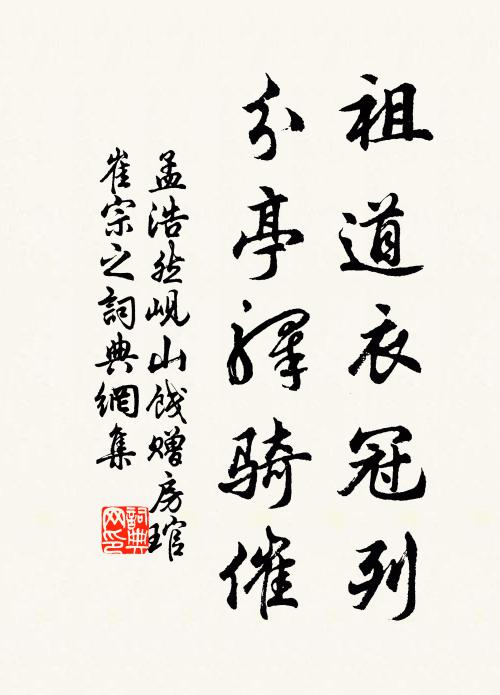 祖道衣冠列
分亭驛騎催
孟浩然峴山餞贈房琯
崔宗之詞典網集
詞典
网印